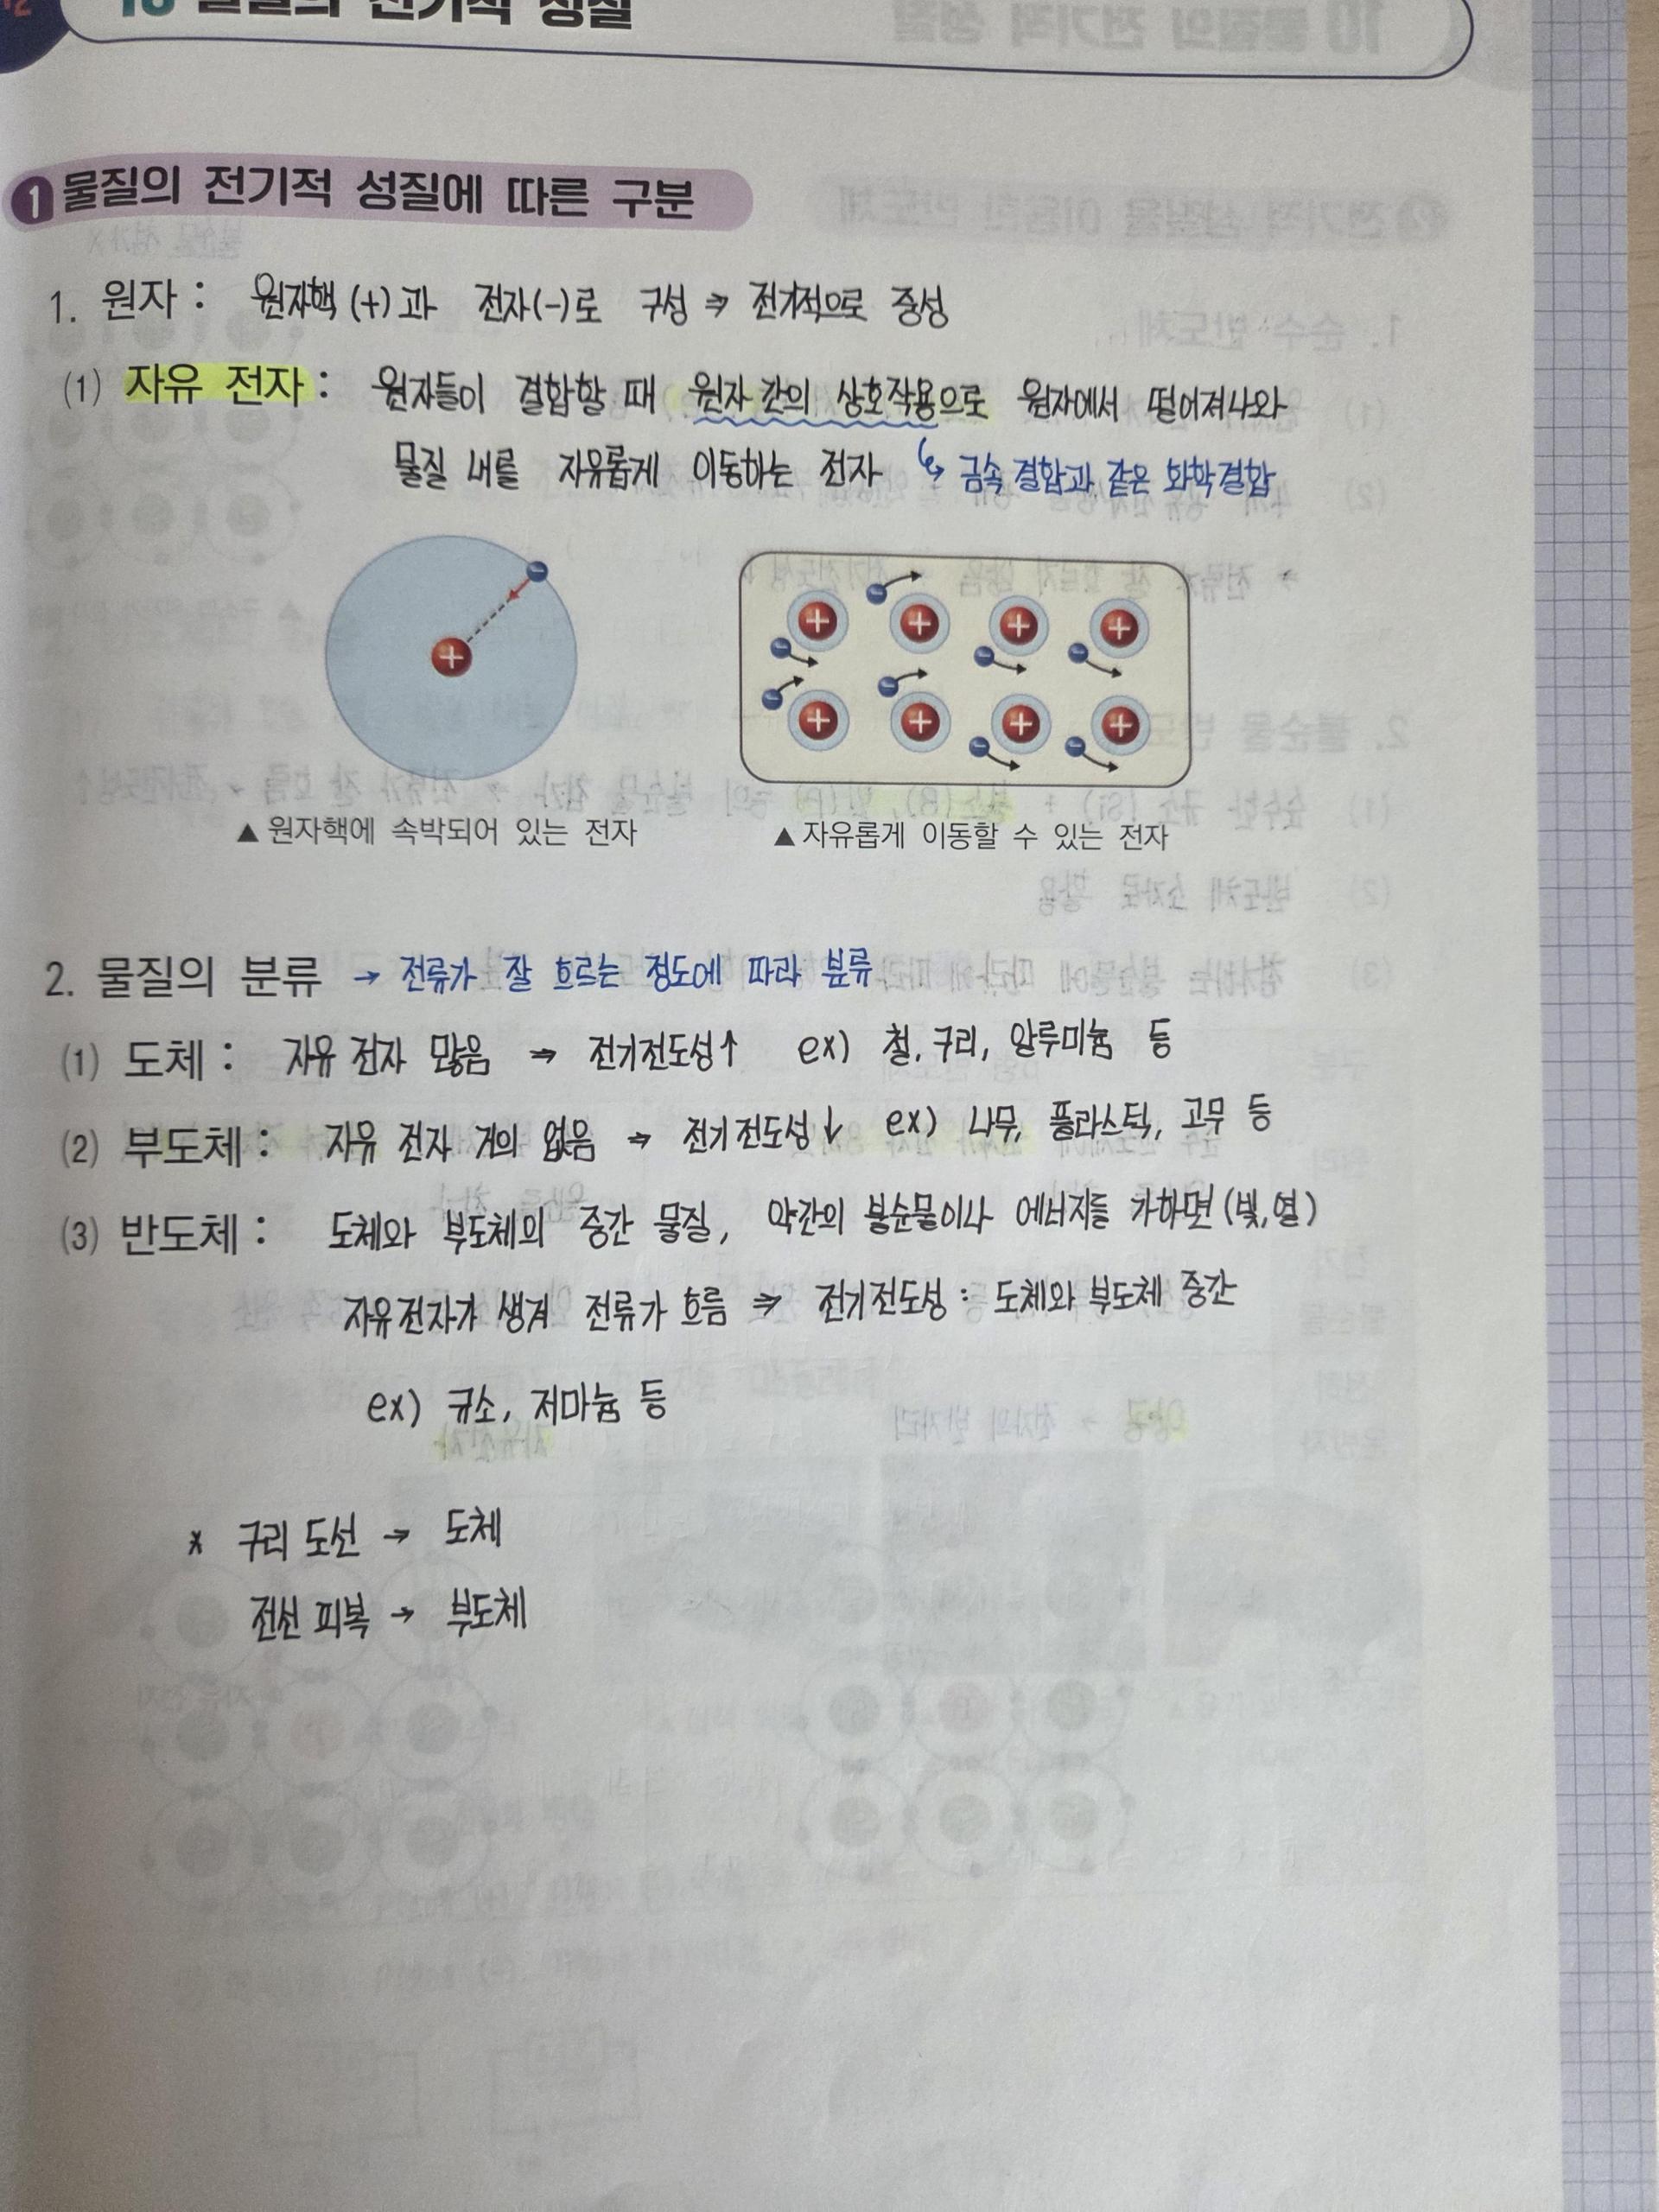 10 물질의 전기적 성질
1 물질의 전기적 성질에 따른 구분
1. 원자 : 원자핵 (+)과 전자(-)로 구성 ⇒ 전기적으로 중성
(1) 자유 전자 : 원자들이 결합할 때 원자 간의 상호작용으로 원자에서 떨어져나와
물질 내를 자유롭게 이동하는 전자 ↳ 금속 결합과 같은 화학결합
▲ 원자핵에 속박되어 있는 전자 ▲ 자유롭게 이동할 수 있는 전자
2. 물질의 분류 → 전류가 잘 흐르는 정도에 따라 분류
(1) 도체 : 자유 전자 많음 ⇒ 전기전도성↑ ex) 철, 구리, 알루미늄 등
(2) 부도체 : 자유 전자 거의 없음 ⇒ 전기전도성↓ ex) 나무, 플라스틱, 고무 등
(3) 반도체 : 도체와 부도체의 중간 물질, 약간의 불순물이나 에너지를 가하면 (빛, 열)
자유전자가 생겨 전류가 흐름 ⇒ 전기전도성 : 도체와 부도체 중간
ex) 규소, 저마늄 등
* 구리 도선 → 도체
전선 피복 → 부도체